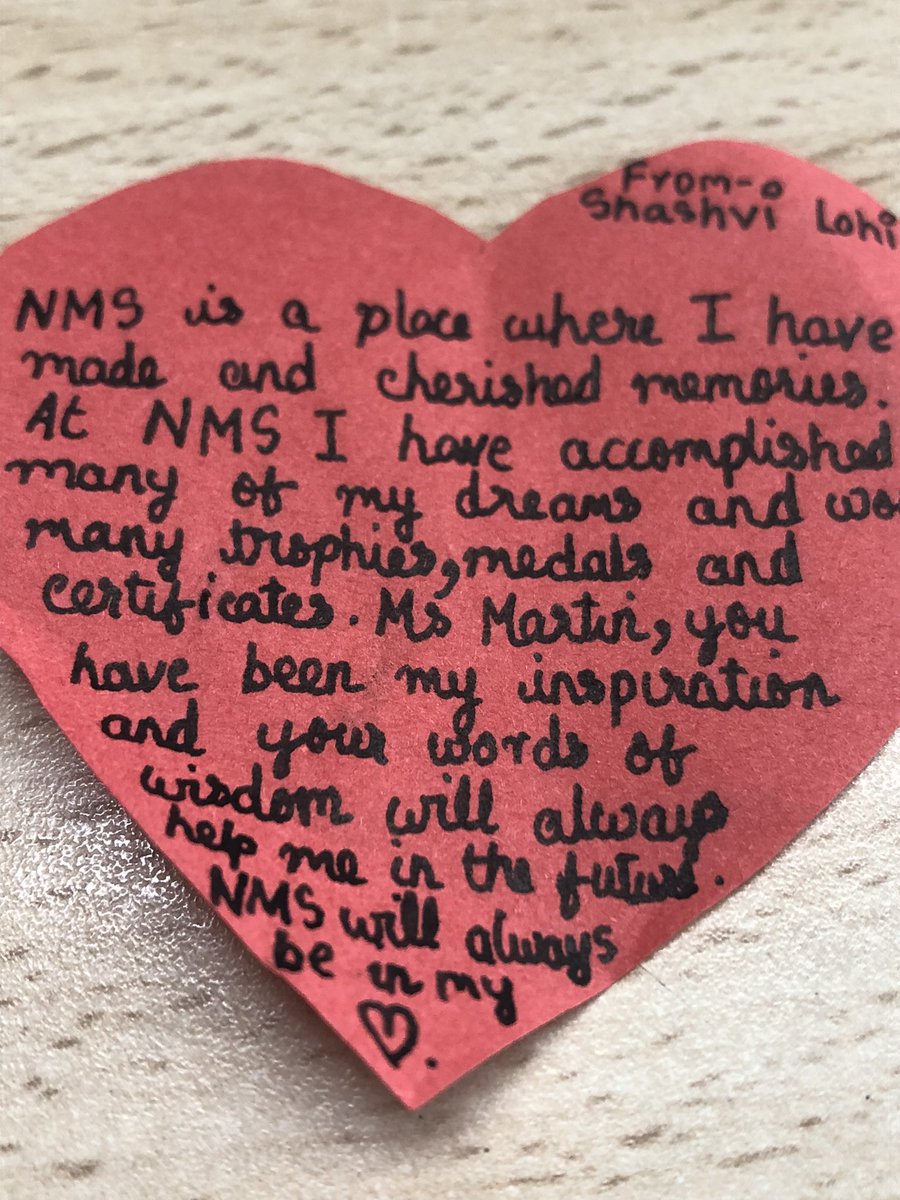 From-
Shashvi Lohi
NMS is a place where I have
made and cherished memories.
At NMS I have accomplished
many of my dreams and wo
many trophies, medals and
certificates. Ms Martin, you
have been my inspiration
and your words of
wisdom will always
help me in the future.
NMS will always
be in my
♡.